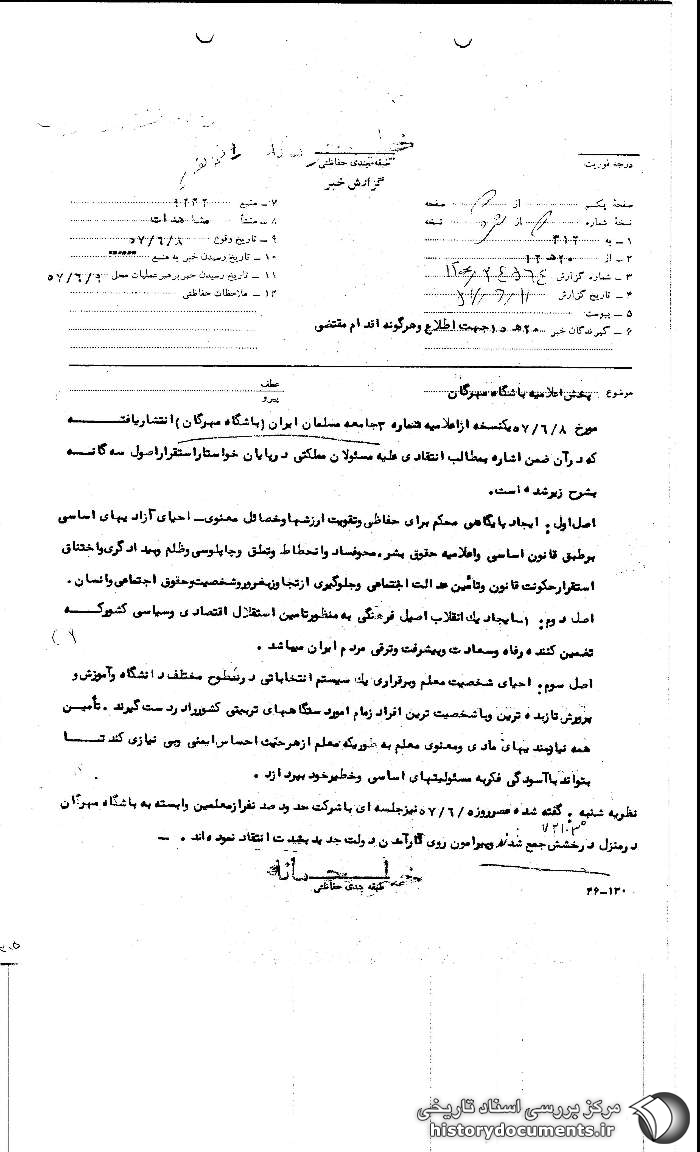 خیلی محرمانه
طبقه‌بندی حفاظتی
گزارش خبر
درجه فوریت
صفحه یکم از صفحه
نسخه شماره از نسخه
۱ ـ به ۳۱۲
۲ ـ از ۲۰ ه‍ ۱۲
۳ ـ شماره گزارش
۴ ـ تاریخ گزارش
۵ ـ پیوست
۶ ـ گیرندگان خبر ۲۰ ه‍ ۱۵ جهت اطلاع و هرگونه اقدام مقتضی
۷ ـ منبع ۹۲۳۲
۸ ـ منشأ مشاهدات
۹ ـ تاریخ وقوع ۵۷/۶/۸
۱۰ ـ تاریخ رسیدن خبر به منبع
۱۱ ـ تاریخ رسیدن خبر برهبر عملیات محل ۵۷/۶/۹
۱۲ ـ ملاحظات حفاظتی
موضوع پخش اعلامیه باشگاه مهرگان
عطف
پیرو
مورخ ۵۷/۶/۸ یکنسخه از اعلامیه شماره ۳ جامعه مسلمان ایران (باشگاه مهرگان) انتشار یافته
که در آن ضمن اشاره بمطالب انتقادی علیه مسئولان مملکتی در پایان خواستار استقرار اصول سه گانه
بشرح زیر شده است.
اصل اول: ایجاد پایگاهی محکم برای حفاظی و تقویت ارزشها و خصائل معنوی ـ احیای آزادیهای اساسی
بر طبق قانون اساسی و اعلامیه حقوق بشر. محو فساد و انحطاط و تملق و چاپلوسی و ظلم و بیدادگری و اختناق
استقرار حکونت قانون و تأمین عدالت اجتماعی و جلوگیری از تجاوز بغرور و شخصیت و حقوق اجتماعی و انسان.
اصل دوم: ایجاد یك انقلاب اصیل فرهنگی به منظور تامین استقلال اقتصادی و سیاسی کشور که
تضمین کننده رفاه و سعادت و پیشرفت و ترقی مردم ایران میباشد.
اصل سوم: احیای شخصیت معلم و برقراری یك سیستم انتخاباتی در سطوح مختلف دانشگاه و آموزش و
پرورش تا زبده ترین و با شخصیت ترین افراد زمام امور دستگاههای تربیتی کشور را در دست گیرند. تأمین
همه نیازمندیهای مادی و معنوی معلم به طوریکه معلم از هر حیث احساس ایمنی و بی نیازی کند تا
بتواند با آسودگی فکر به مسئولیتهای اساسی و خطیر خود بپردازد.
نظریه شنبه: گفته شده عصر روز ۵۷/۶/۵ نیز جلسه ای با شرکت حدود صد نفر از معلمین وابسته به باشگاه مهرگان
در منزل درخشش جمع شده و پیرامون روی کار آمدن دولت جدید بشدت انتقاد نموده اند. ـ
خیلی محرمانه
طبقه بندی حفاظتی
۴۶-۱۳۰
مرکز بررسی اسناد تاریخی
historydocuments.ir